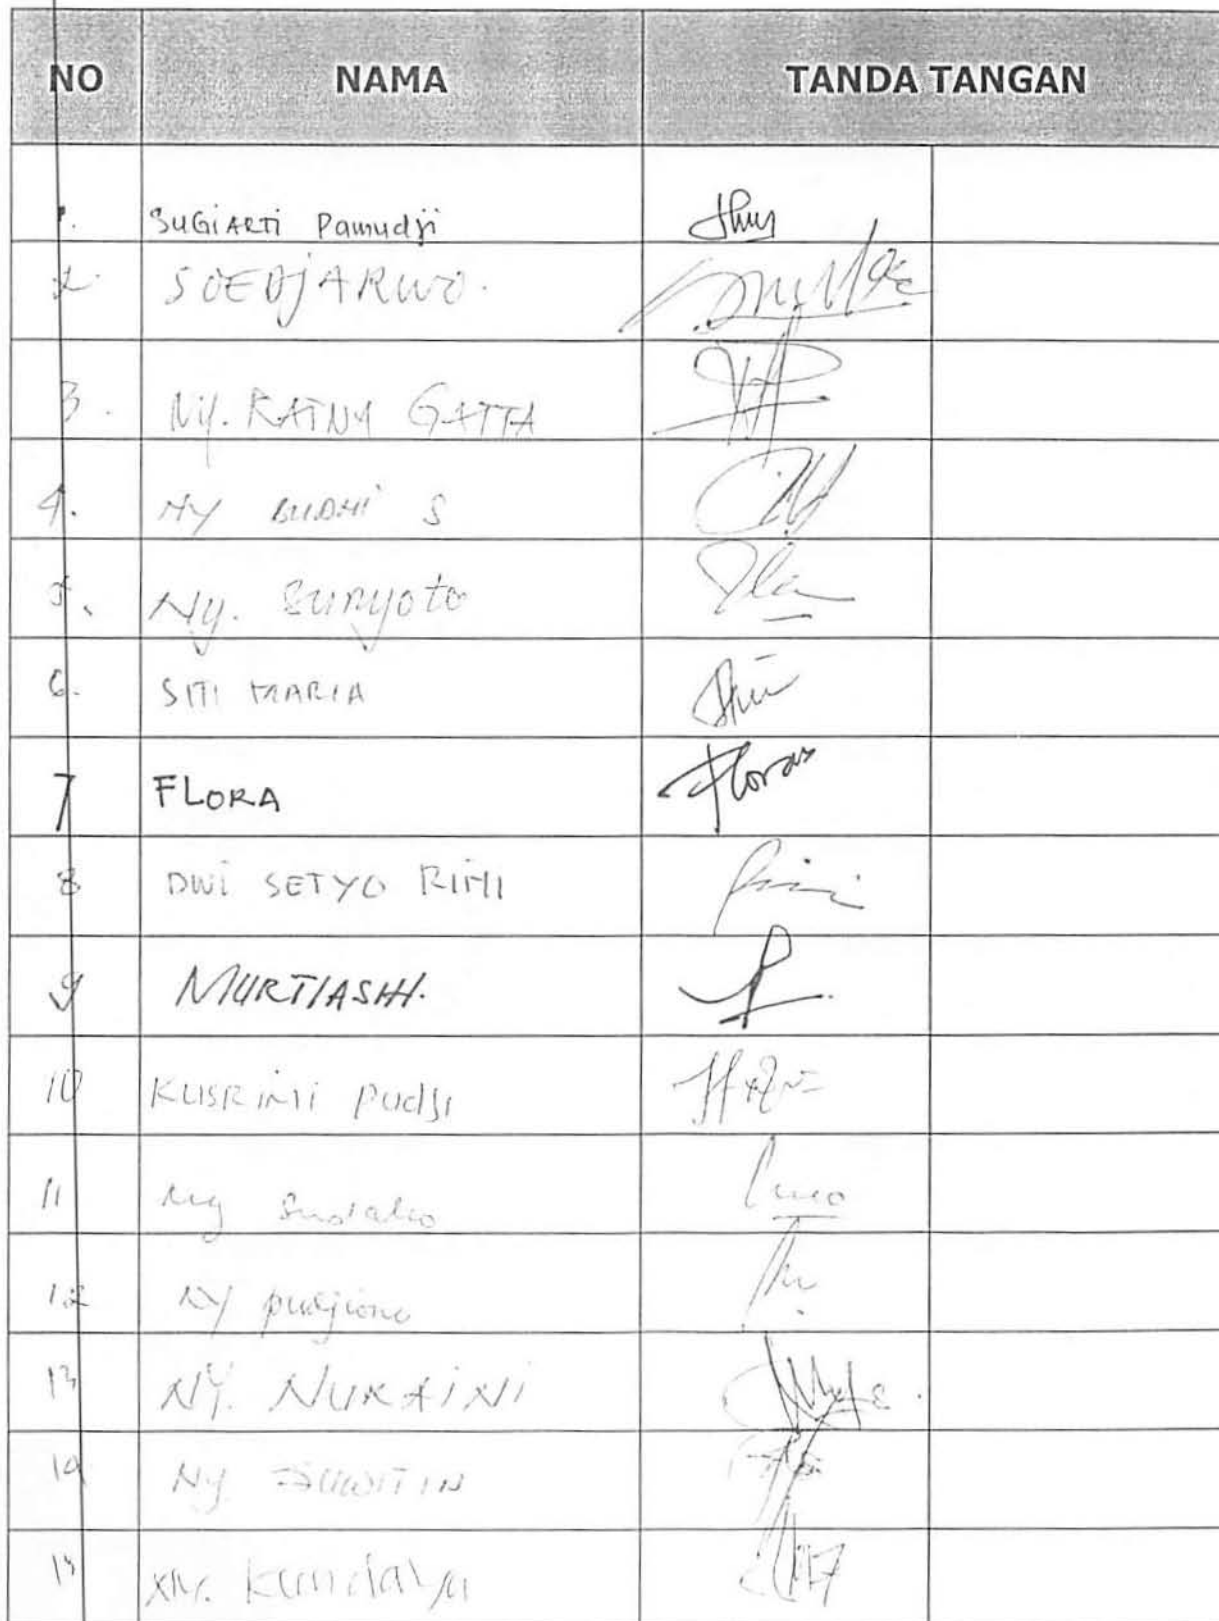 NO NAMA TANDA TANGAN
1. SUGIARTI Pamudji
2. SOEDJARWO.
3. NY. RATNA GATTA
4. NY BUDHI S
5. Ny. Suryoto
6. SITI MARIA
7 FLORA Floras
8 DWI SETYO RINI Rini
9 MURTIASIH.
10 KUSRINI Pudji
11 Ny
12 NY pudjiono
13 NY. NURAINI
14 Ny
15 Kundaya